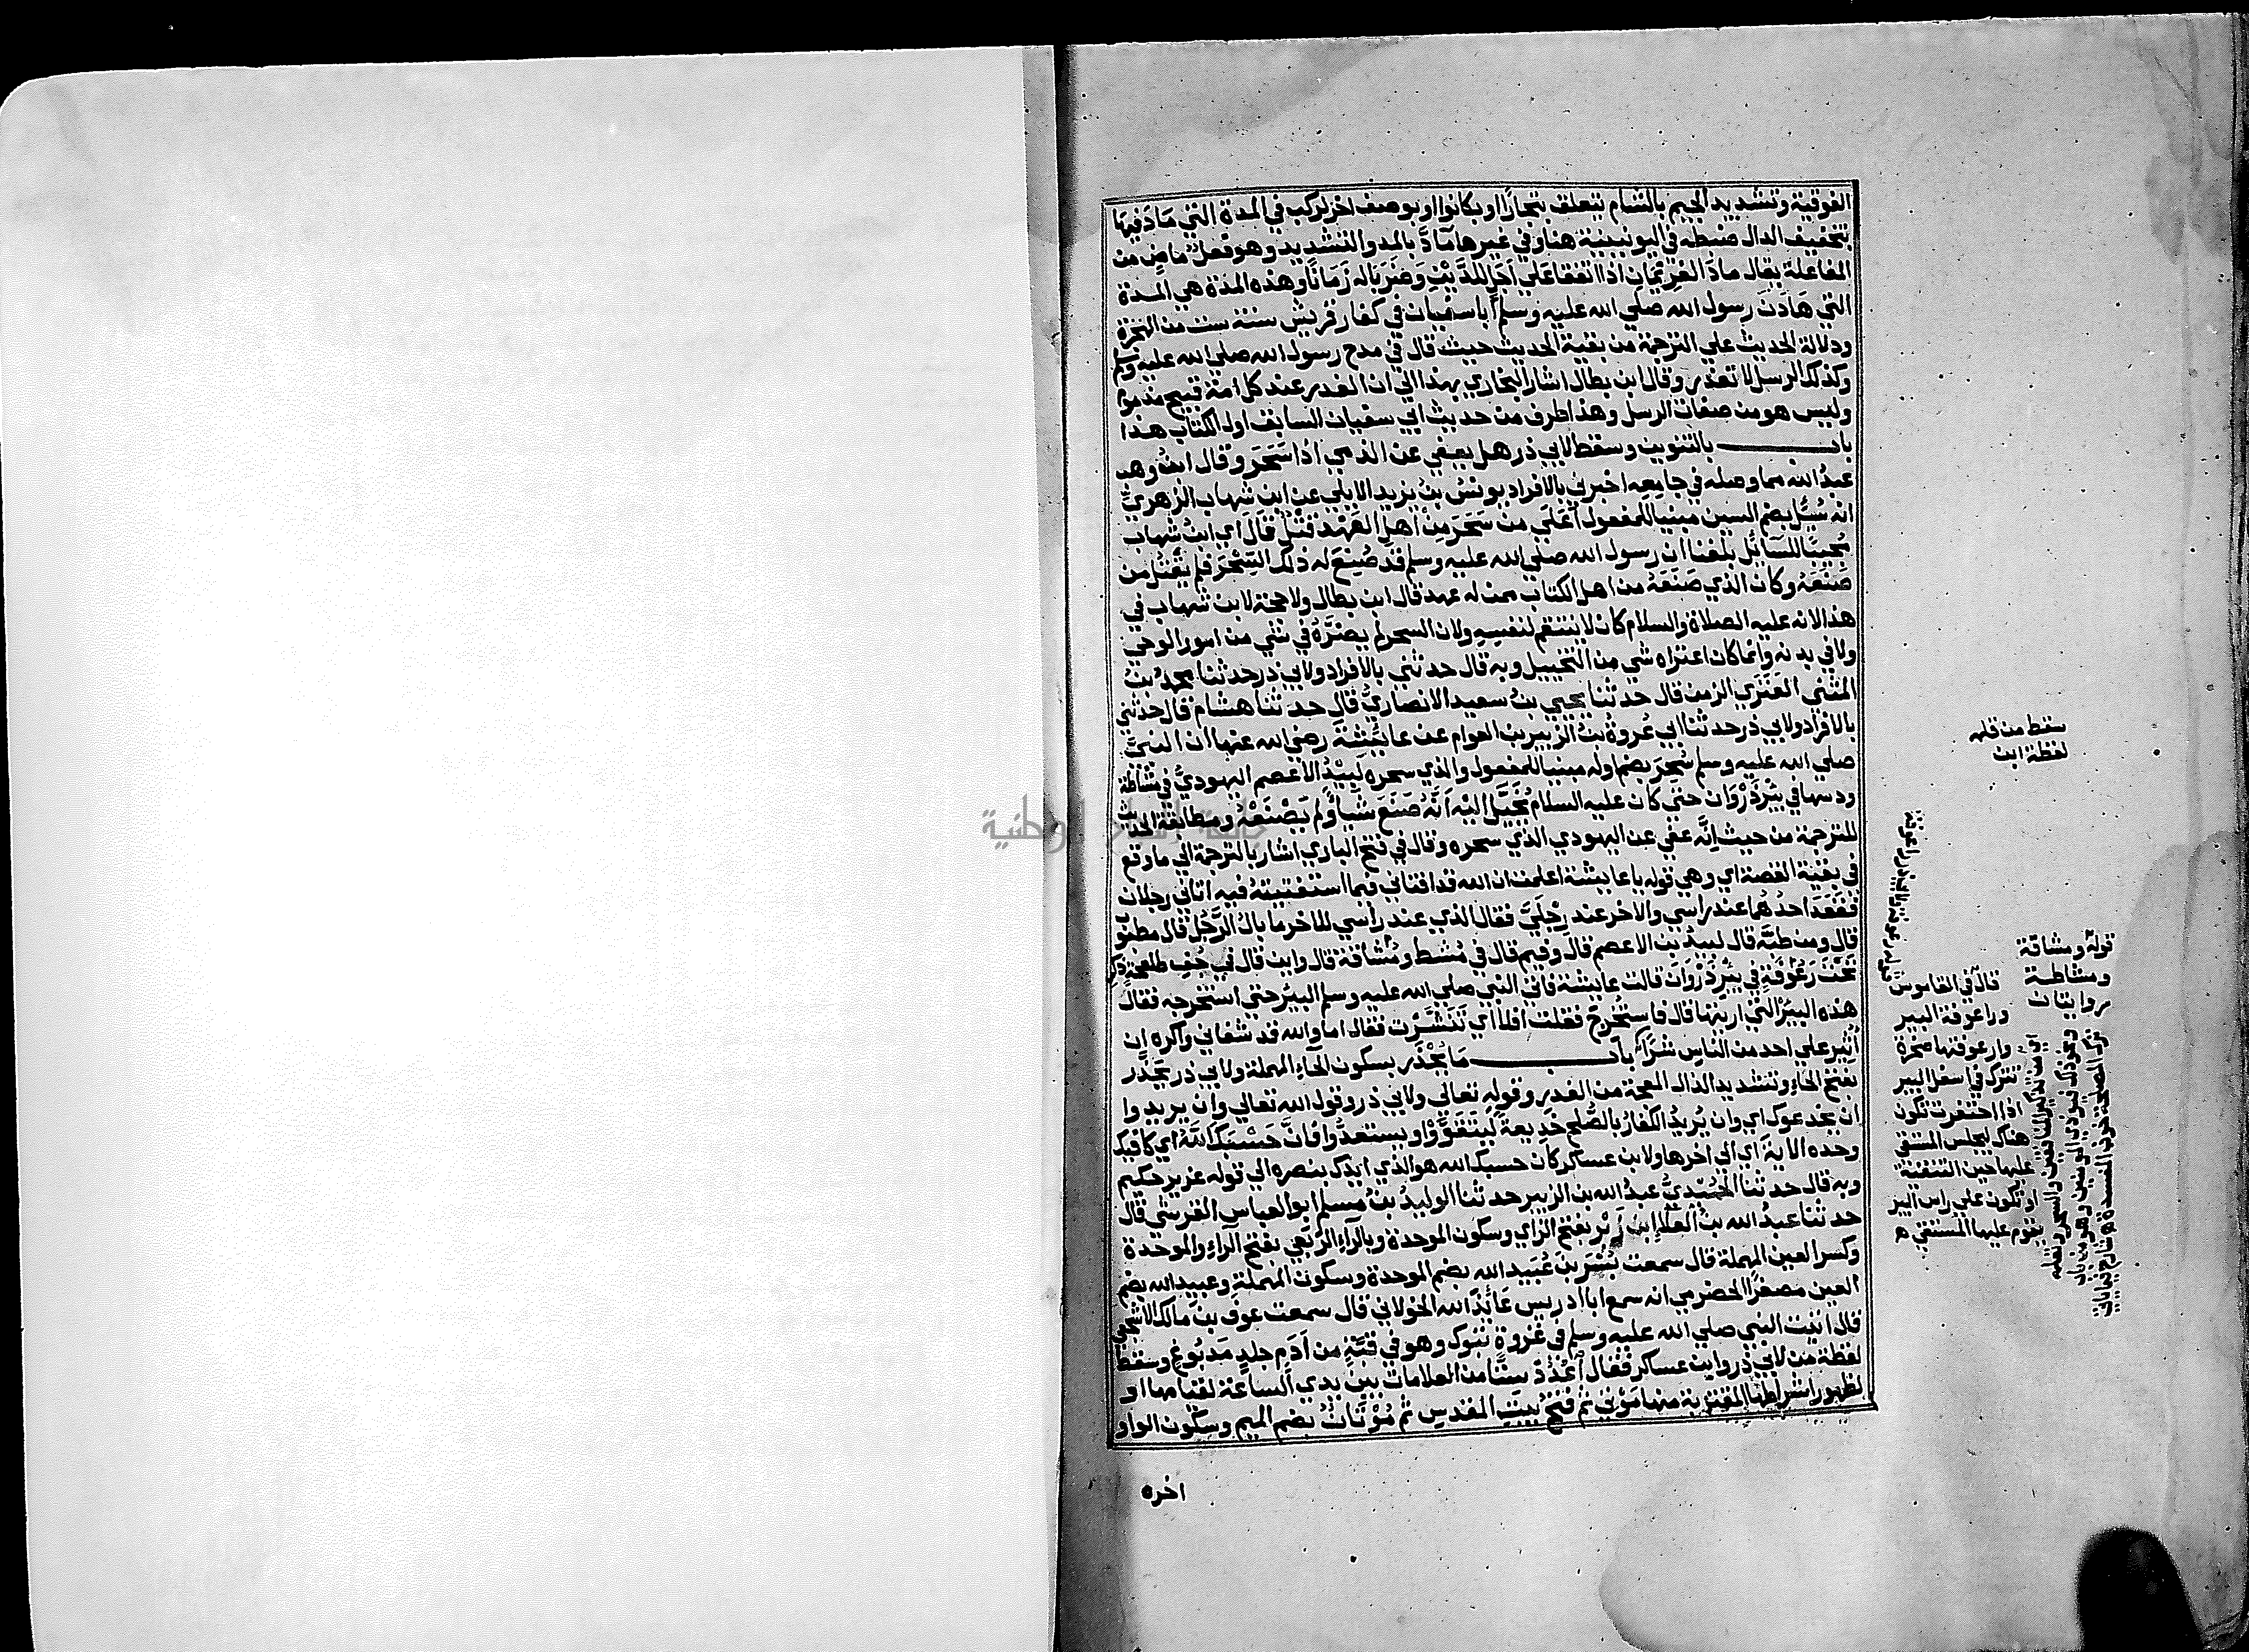 الفوقية وتشديد الجيم بالشام يتعلق بتجارًا او بكانوا او بوصف اخر لركب في المدة التي مَادَّ فيها
بتخفيف الدال ضبطه في اليونينية هنا وفي غيرها مآدَّ بالمد والتشديد وهو فعل ماضٍ من
المفاعلة يقال مادَّ الغريمان اذا اتفقا علي اجَلٍ للدَّيْنِ وَضَرَبَا له زَمَانًا وهذه المدة هي المدة
التي هَادَنَ رسول الله صلي الله عليه وسلم أبا سفيان في كفار قريش سنة ست من الهجرة
ودلالة الحديث علي الترجمة من بقية الحديث حيث قال في مدح رسول الله صلي الله عليه وسلم
وكذلك الرسل لا تغدر وقال ابن بطال اشار البخاري بهذا الي ان الغدر عند كل امة قبيح مذموم
وليس هو من صفات الرسل وهذا طرف من حديث ابي سفيان السابق اول الكتاب هذا
باب بالتنوين وسقط لابي ذر هل يعفي عن الذمي اذا سَحَرَ وقال ابنُ وهب
عبدُ الله مما وصله في جامعه اخبرني بالافراد يونسُ بنُ يزيد الايلي عن ابن شهاب الزهريِّ
انه سُئِلَ بضم السين مبنيا للمفعول أَعَلَي مَنْ سَحَرَ مِنْ اَهلِ العَهْد قَتْلٌ قَالَ اي ابنُ شهاب
مُجيبًا للسائل بلغنا ان رسول الله صلي الله عليه وسلم قَدْ صُنِعَ لَه ذلك السِّحْرُ فلم يَقْتُل من
صَنَعَهُ وكان الذي صَنَعَهُ من اهل الكتاب ممن له عهد قال ابن بطال ولا حجة لابن شهاب في
هذا لانه عليه الصلاة والسلام كان لا ينتقم لنفسه ولان السحر لم يضرَّهُ في شي من امور الوحي
ولا في بدنه وانما كان اعتراه شي من التخييل وبه قال حدثني بالافراد ولابي ذر حدثنا محمدُ بنُ
المثني العَنَزِي الزمن قال حدثنا يحيي بنُ سعيد الانصاريُّ قال حدثنا هشام قال حدثني
بالافراد ولابي ذر حدثنا ابي عُروةُ بنُ الزبير بن العوام عن عايشَةَ رضي الله عنها ان النبيَّ
صلي الله عليه وسلم سُحِرَ بضم اوله مبنيا للمفعول والذي سحره لَبِيْدُ الاعصم اليهوديُّ في مشاطة
ودسها في بيْرِ ذَرْوَان حتي كان عليه السلام يُخَيَّلُ اليْهِ اَنَّهُ صَنَعَ شيأً ولم يَصْنَعْهُ ومطابقة الحديث
للترجمة من حيث انَّه عفي عن اليهودي الذي سحره وقال في فتح الباري اشار بالترجمة الي ما وقع
في بقيَّة القصة اي وهي قوله يا عايشة اعلمت ان الله قد افتاني فيما استفتيته فيه اتاني رجلان
فقعَدَ احدُهما عند راسي والاخر عند رِجْلَيَّ فقال الذي عند راسي للاخر ما بالُ الرَّجُل قال مطبوب
قال ومن طَبَّه قال لبيدُ بن الاعصم قال وفيم قال في مُشط ومُشَاقة قال واين قال في جُفِ طلعةٍ ذكر
تَحْتَ رَعُوفَةٍ في بئرِ ذَرْوَانَ قالت عايشة فاتي النبي صلي الله عليه وسلم البيرَ حتي استخرجه فقال
هذه البيرُ التي اريتها قال فاستُخْرِجَ فقلت افلا اي تَنَشَّرْت فقال اما والله قد شفاني واكره ان
أُثيرَ علي احد من الناس شرًّا باب مَا يُحْذَر بسكون الحاء المهملة ولابي ذر يُحَذَّر
بفتح الحاء وتشديد الذال المعجمة من الغدر وقوله تعالي ولابي ذر وقول الله تعالي وان يريدوا
ان يخدعوك اي وان يُريدُ الكفارُ بالصُّلح خَديعةً ليتقوَّوْا ويستعدُّوا فانَّ حَسْبَكَ اللهُ اي كافيك
وحده الاية اي الي اخرها ولابن عساكر فان حسبك الله هو الذي ايدك بنصره الي قوله عزيز حكيم
وبه قال حدثنا الحُمَيْديُّ عبدُ الله بن الزبير حدثنا الوليدُ بنُ مسلم ابو العباس القرشي قال
حدثنا عبدُ الله بنُ العلاِ ابن زَبْر بفتح الزاي وسكون الموحدة وبالراءِ الرَّبَعي بفتح الراءِ والموحدة
وكسر العين المهملة قال سمعت بُسْرَ بنَ عُبَيد الله بضم الموحدة وسكون المهملة وعبيد الله بضم
العين مصغرًا الحضرمي انه سمع ابا ادريس عَائِذَ الله الخولاني قال سمعت عوف بن مالك الاشجعي
قال اتيت النبي صلي الله عليه وسلم في غزوة تبوك وهو في قُبَّةٍ من اَدَمٍ جلدٍ مَدبُوغٍ وسقط
لفظة من لابي ذر وابن عساكر فقال اُعْدُدْ سِتًّا من العلامات بين يدي الساعة لقيامها او
لظهور اشراطها المقتربة منها مَوْتي ثم فَتْحُ بيتِ المقدس ثم مُوْتَانٌ بضم الميم وسكون الواو
اخره
سقط من قلمه
لفظة ابن
قوله ومشاقة
ومشاطة
روايتان
قال في القاموس
وراعوفة البير
وارعوفتها صخرة
تترك في اسفل البير
اذا احتفرت تكون
هناك ليجلس المستقي
عليها حين التنقية
او تكون علي راس البير
يقوم عليها المستقي ه